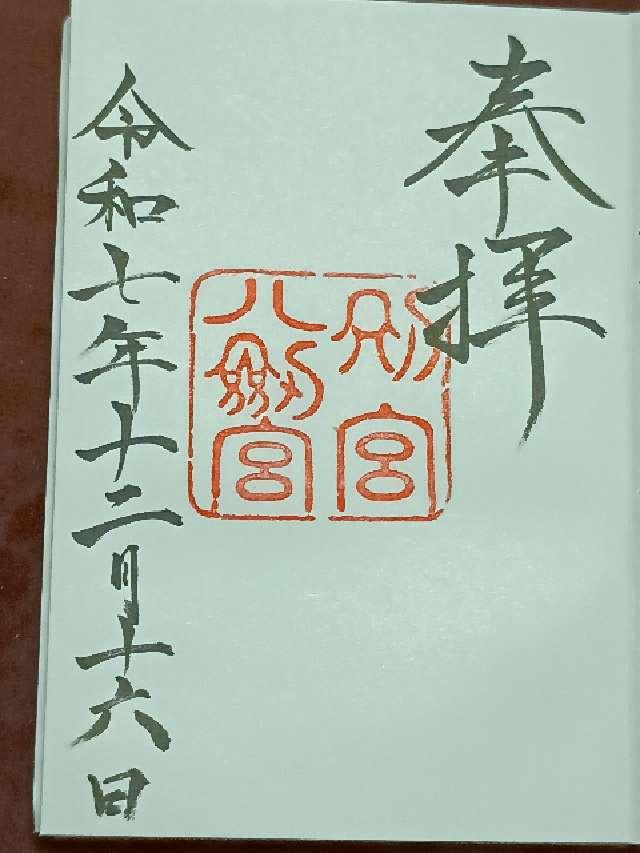 奉拝
別宮
八劔宮
令和七年十二月十六日